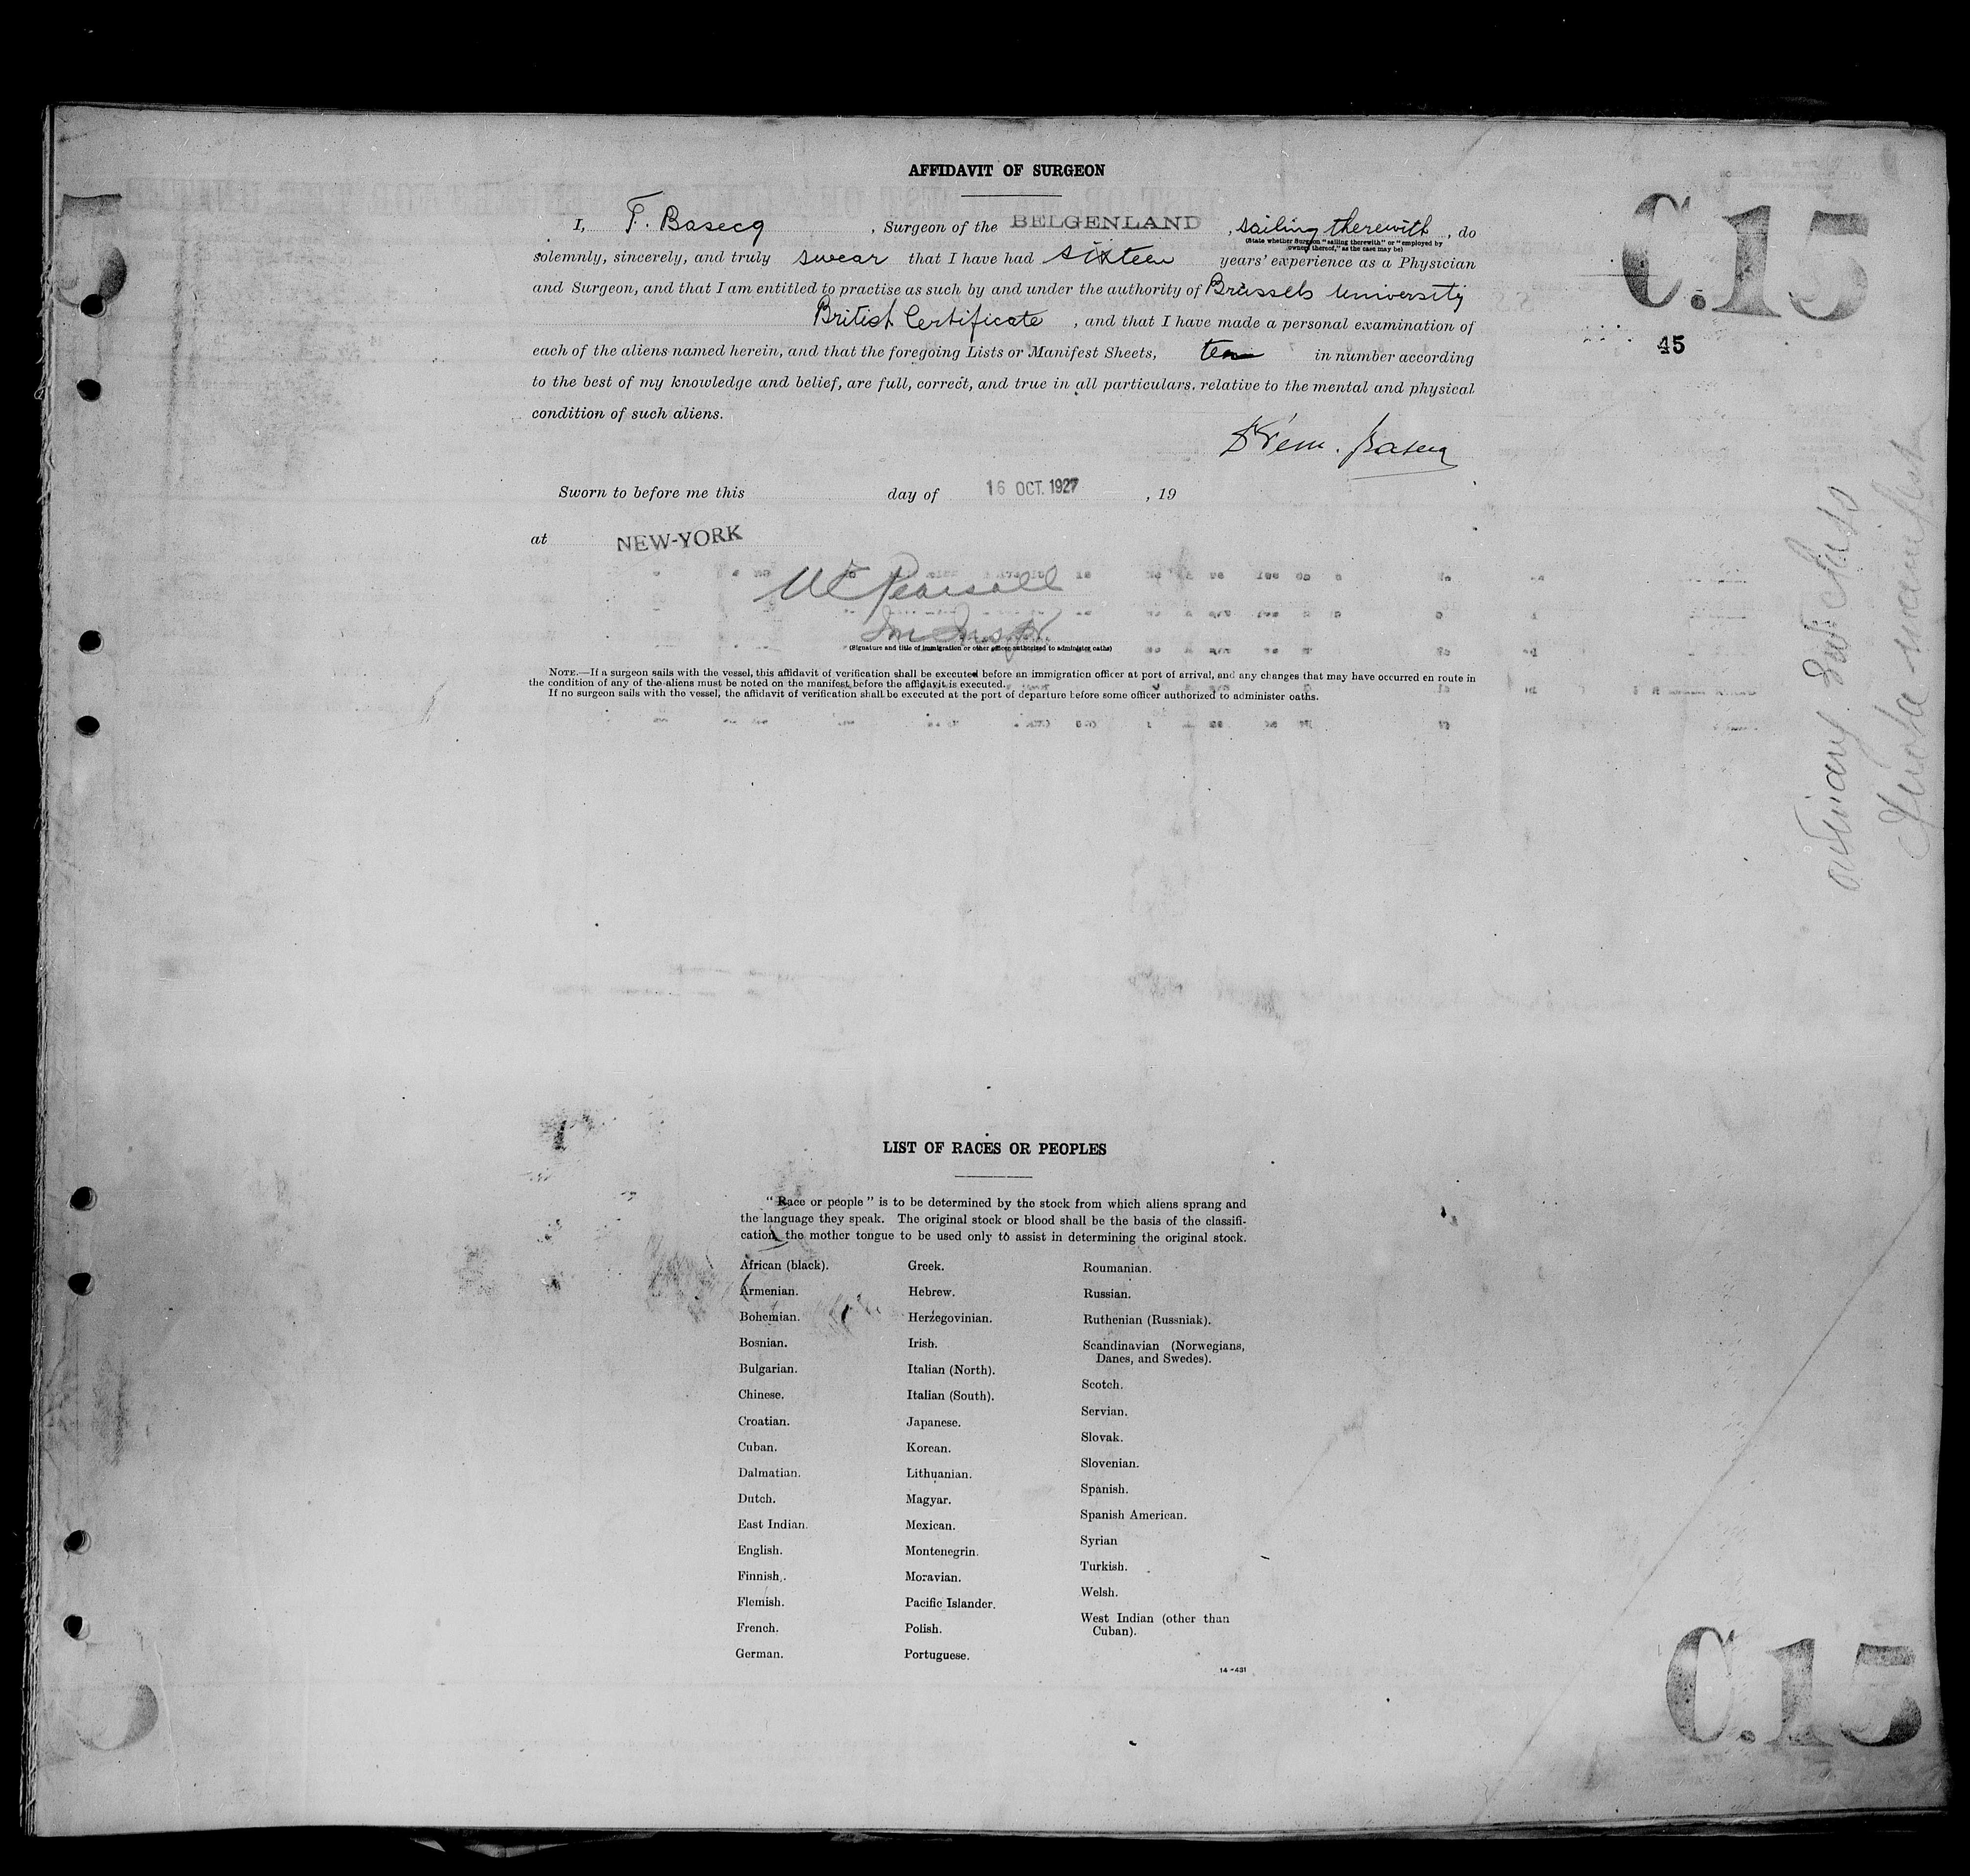 AFFIDAVIT OF SURGEON
I, F. Basecq, Surgeon of the BELGENLAND, sailing therewith, do
(State whether Surgeon "sailing therewith" or "employed by
owners thereof," as the case may be)
solemnly, sincerely, and truly swear that I have had sixteen years' experience as a Physician
and Surgeon, and that I am entitled to practise as such by and under the authority of Brussels University
British Certificate, and that I have made a personal examination of
each of the aliens named herein, and that the foregoing Lists or Manifest Sheets, ten in number according
to the best of my knowledge and belief, are full, correct, and true in all particulars, relative to the mental and physical
condition of such aliens.
Basecq
Sworn to before me this day of 16 OCT. 1927, 19
at NEW-YORK
Pearsall
Im Inspr.
(Signature and title of immigration or other officer authorized to administer oaths)
NOTE.—If a surgeon sails with the vessel, this affidavit of verification shall be executed before an immigration officer at port of arrival, and any changes that may have occurred en route in
the condition of any of the aliens must be noted on the manifest before the affidavit is executed.
If no surgeon sails with the vessel, the affidavit of verification shall be executed at the port of departure before some officer authorized to administer oaths.
C.15
45
2nd class
manifest
LIST OF RACES OR PEOPLES
"Race or people" is to be determined by the stock from which aliens sprang and
the language they speak. The original stock or blood shall be the basis of the classifi-
cation, the mother tongue to be used only to assist in determining the original stock.
African (black).
Armenian.
Bohemian.
Bosnian.
Bulgarian.
Chinese.
Croatian.
Cuban.
Dalmatian.
Dutch.
East Indian.
English.
Finnish.
Flemish.
French.
German.
Greek.
Hebrew.
Herzegovinian.
Irish.
Italian (North).
Italian (South).
Japanese.
Korean.
Lithuanian.
Magyar.
Mexican.
Montenegrin.
Moravian.
Pacific Islander.
Polish.
Portuguese.
Roumanian.
Russian.
Ruthenian (Russniak).
Scandinavian (Norwegians,
Danes, and Swedes).
Scotch.
Servian.
Slovak.
Slovenian.
Spanish.
Spanish American.
Syrian
Turkish.
Welsh.
West Indian (other than
Cuban).
14-431
C.15